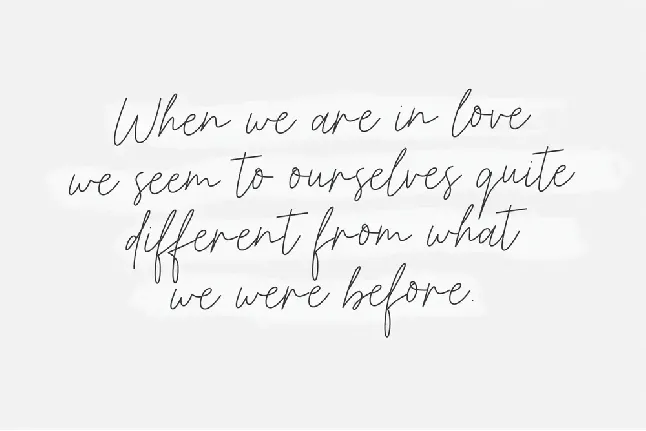 When we are in love
we seem to ourselves quite
different from what
we were before.